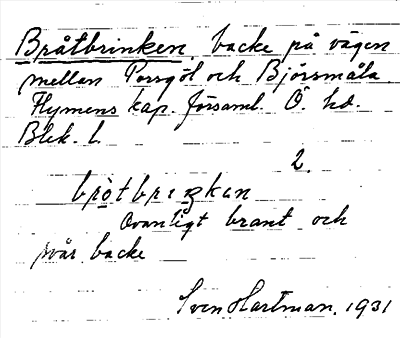 Bråtbrinken, backe på vägen
mellan Porsgöl och Björsmåla
Flymens kap. församl. Ö. hd.
Blek. l.
2.
brȯtbrıŋkən
Ovanligt brant och
svår backe
Sven Hartman. 1931